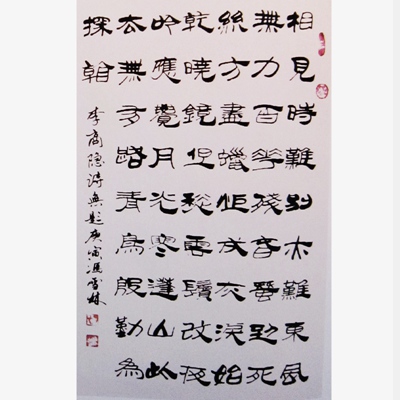 相見時難別亦難東風
無力百花殘春蠶到死
絲方盡蠟炬成灰淚始
乾曉鏡但愁雲鬢改夜
吟應覺月光寒蓬山此
去無多路青鳥殷勤為
探看
李商隱詩無題庚寅馮雪林